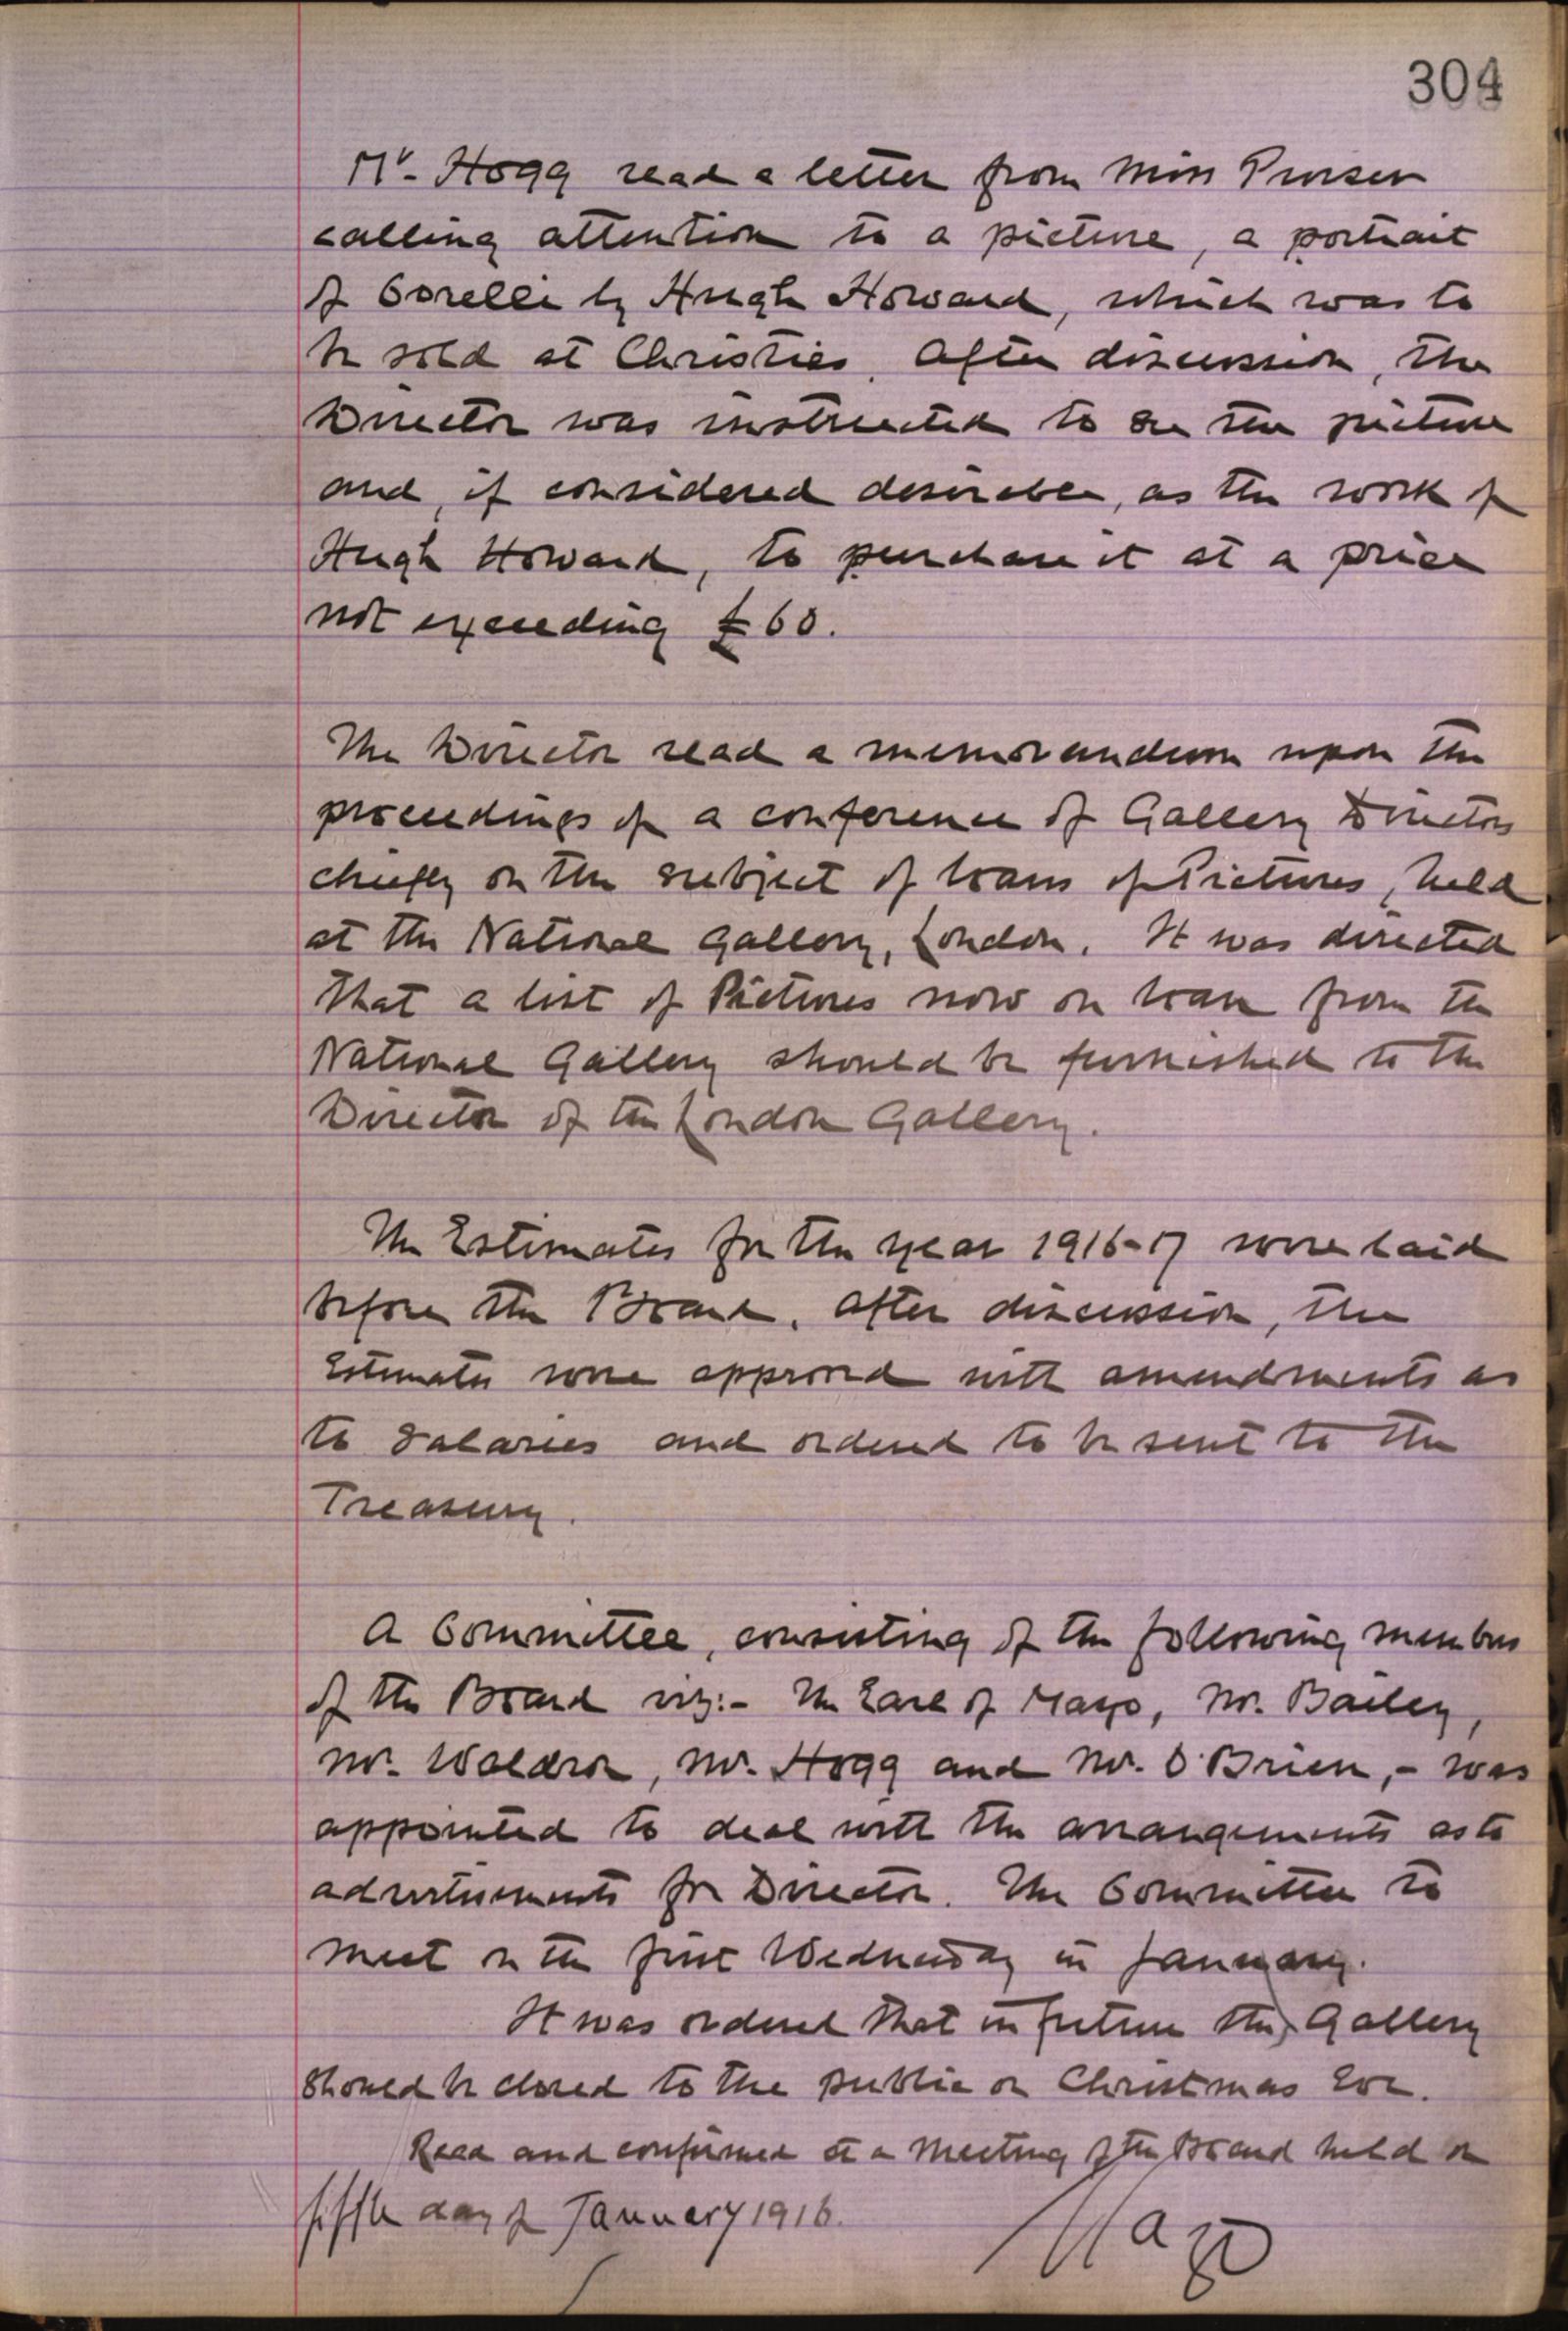 304
Mr. Hogg read a letter from Miss Purser
calling attention to a picture, a portrait
of Corelli by Hugh Howard, which was to
be sold at Christies. After discussion, the
Director was instructed to see the picture
and, if considered desirable, as the work of
Hugh Howard, to purchase it at a price
not exceeding £60.
The Director read a memorandum upon the
proceedings of a conference of Gallery Directors
chiefly on the subject of loans of Pictures, held
at the National Gallery, London. It was directed
that a list of Pictures now on loan from the
National Gallery should be furnished to the
Director of the London Gallery.
The Estimates for the year 1916-17 were laid
before the Board. After discussion, the
Estimates were approved with amendments as
to salaries and ordered to be sent to the
Treasury.
A Committee, consisting of the following members
of the Board viz:- The Earl of Mayo, Mr. Bailey,
Mr. Waldron, Mr. Hogg and Mr. O'Brien,- was
appointed to deal with the arrangements as to
advertisements for Director. The Committee to
meet on the first Wednesday in January.
It was ordered that in future the Gallery
should be closed to the public on Christmas Eve.
Read and confirmed at a Meeting of the Board held on
fifth day of January 1916.
Mayo